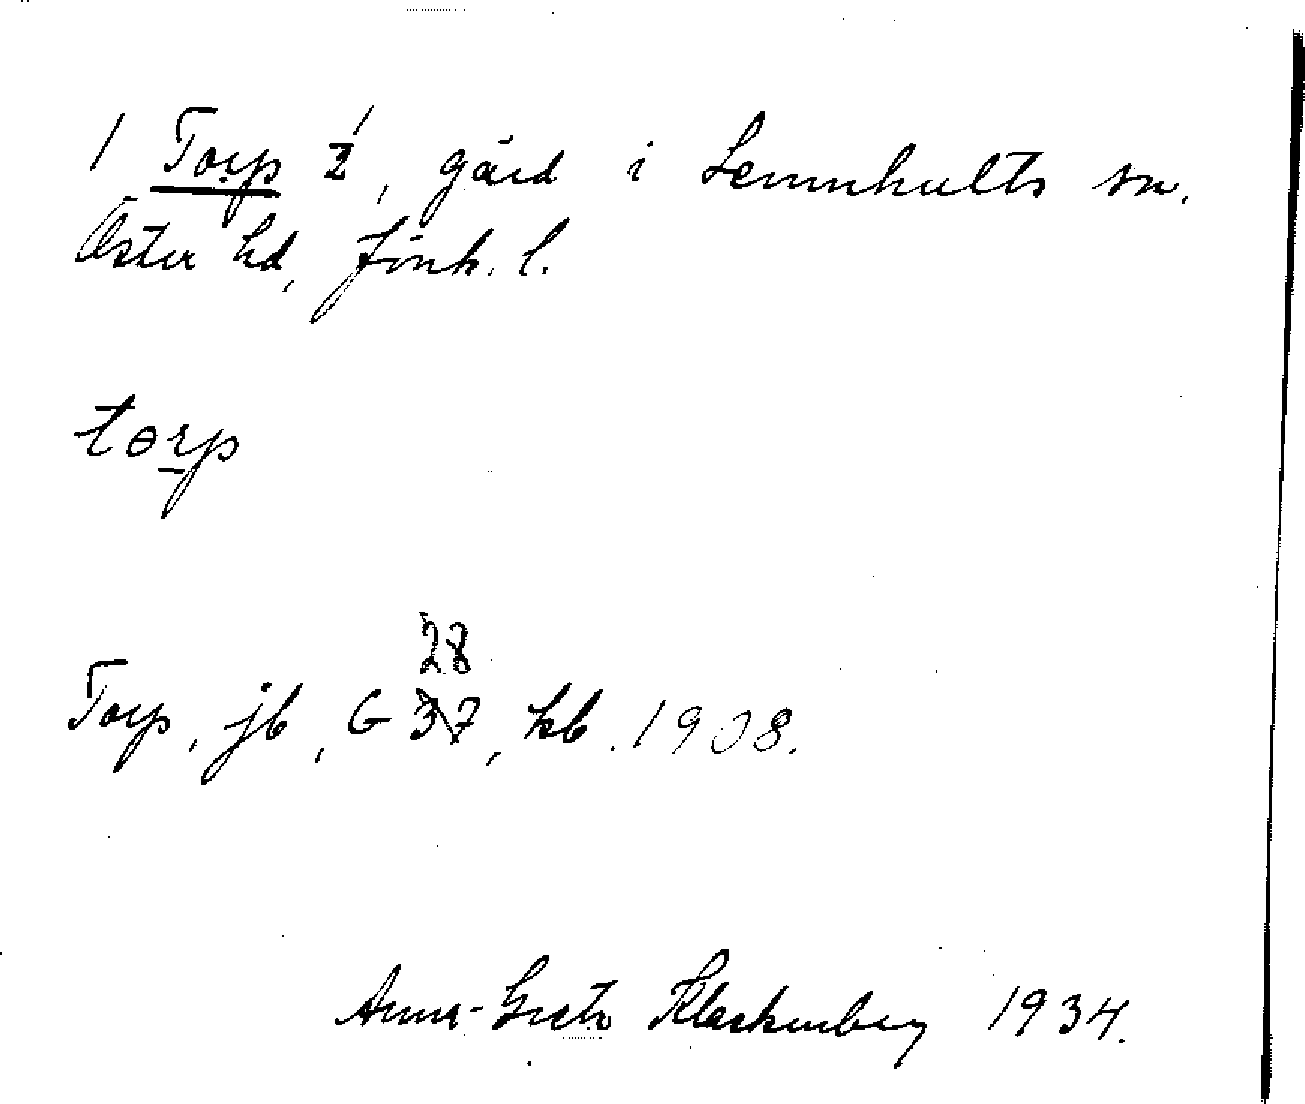 / Torp 2/, gård i Lemnhults sn.
Öster hd, Jönk. l.
torp
28
Torp, jb, G 37, hb. 1908.
Anna-Greta Klackenberg 1934.